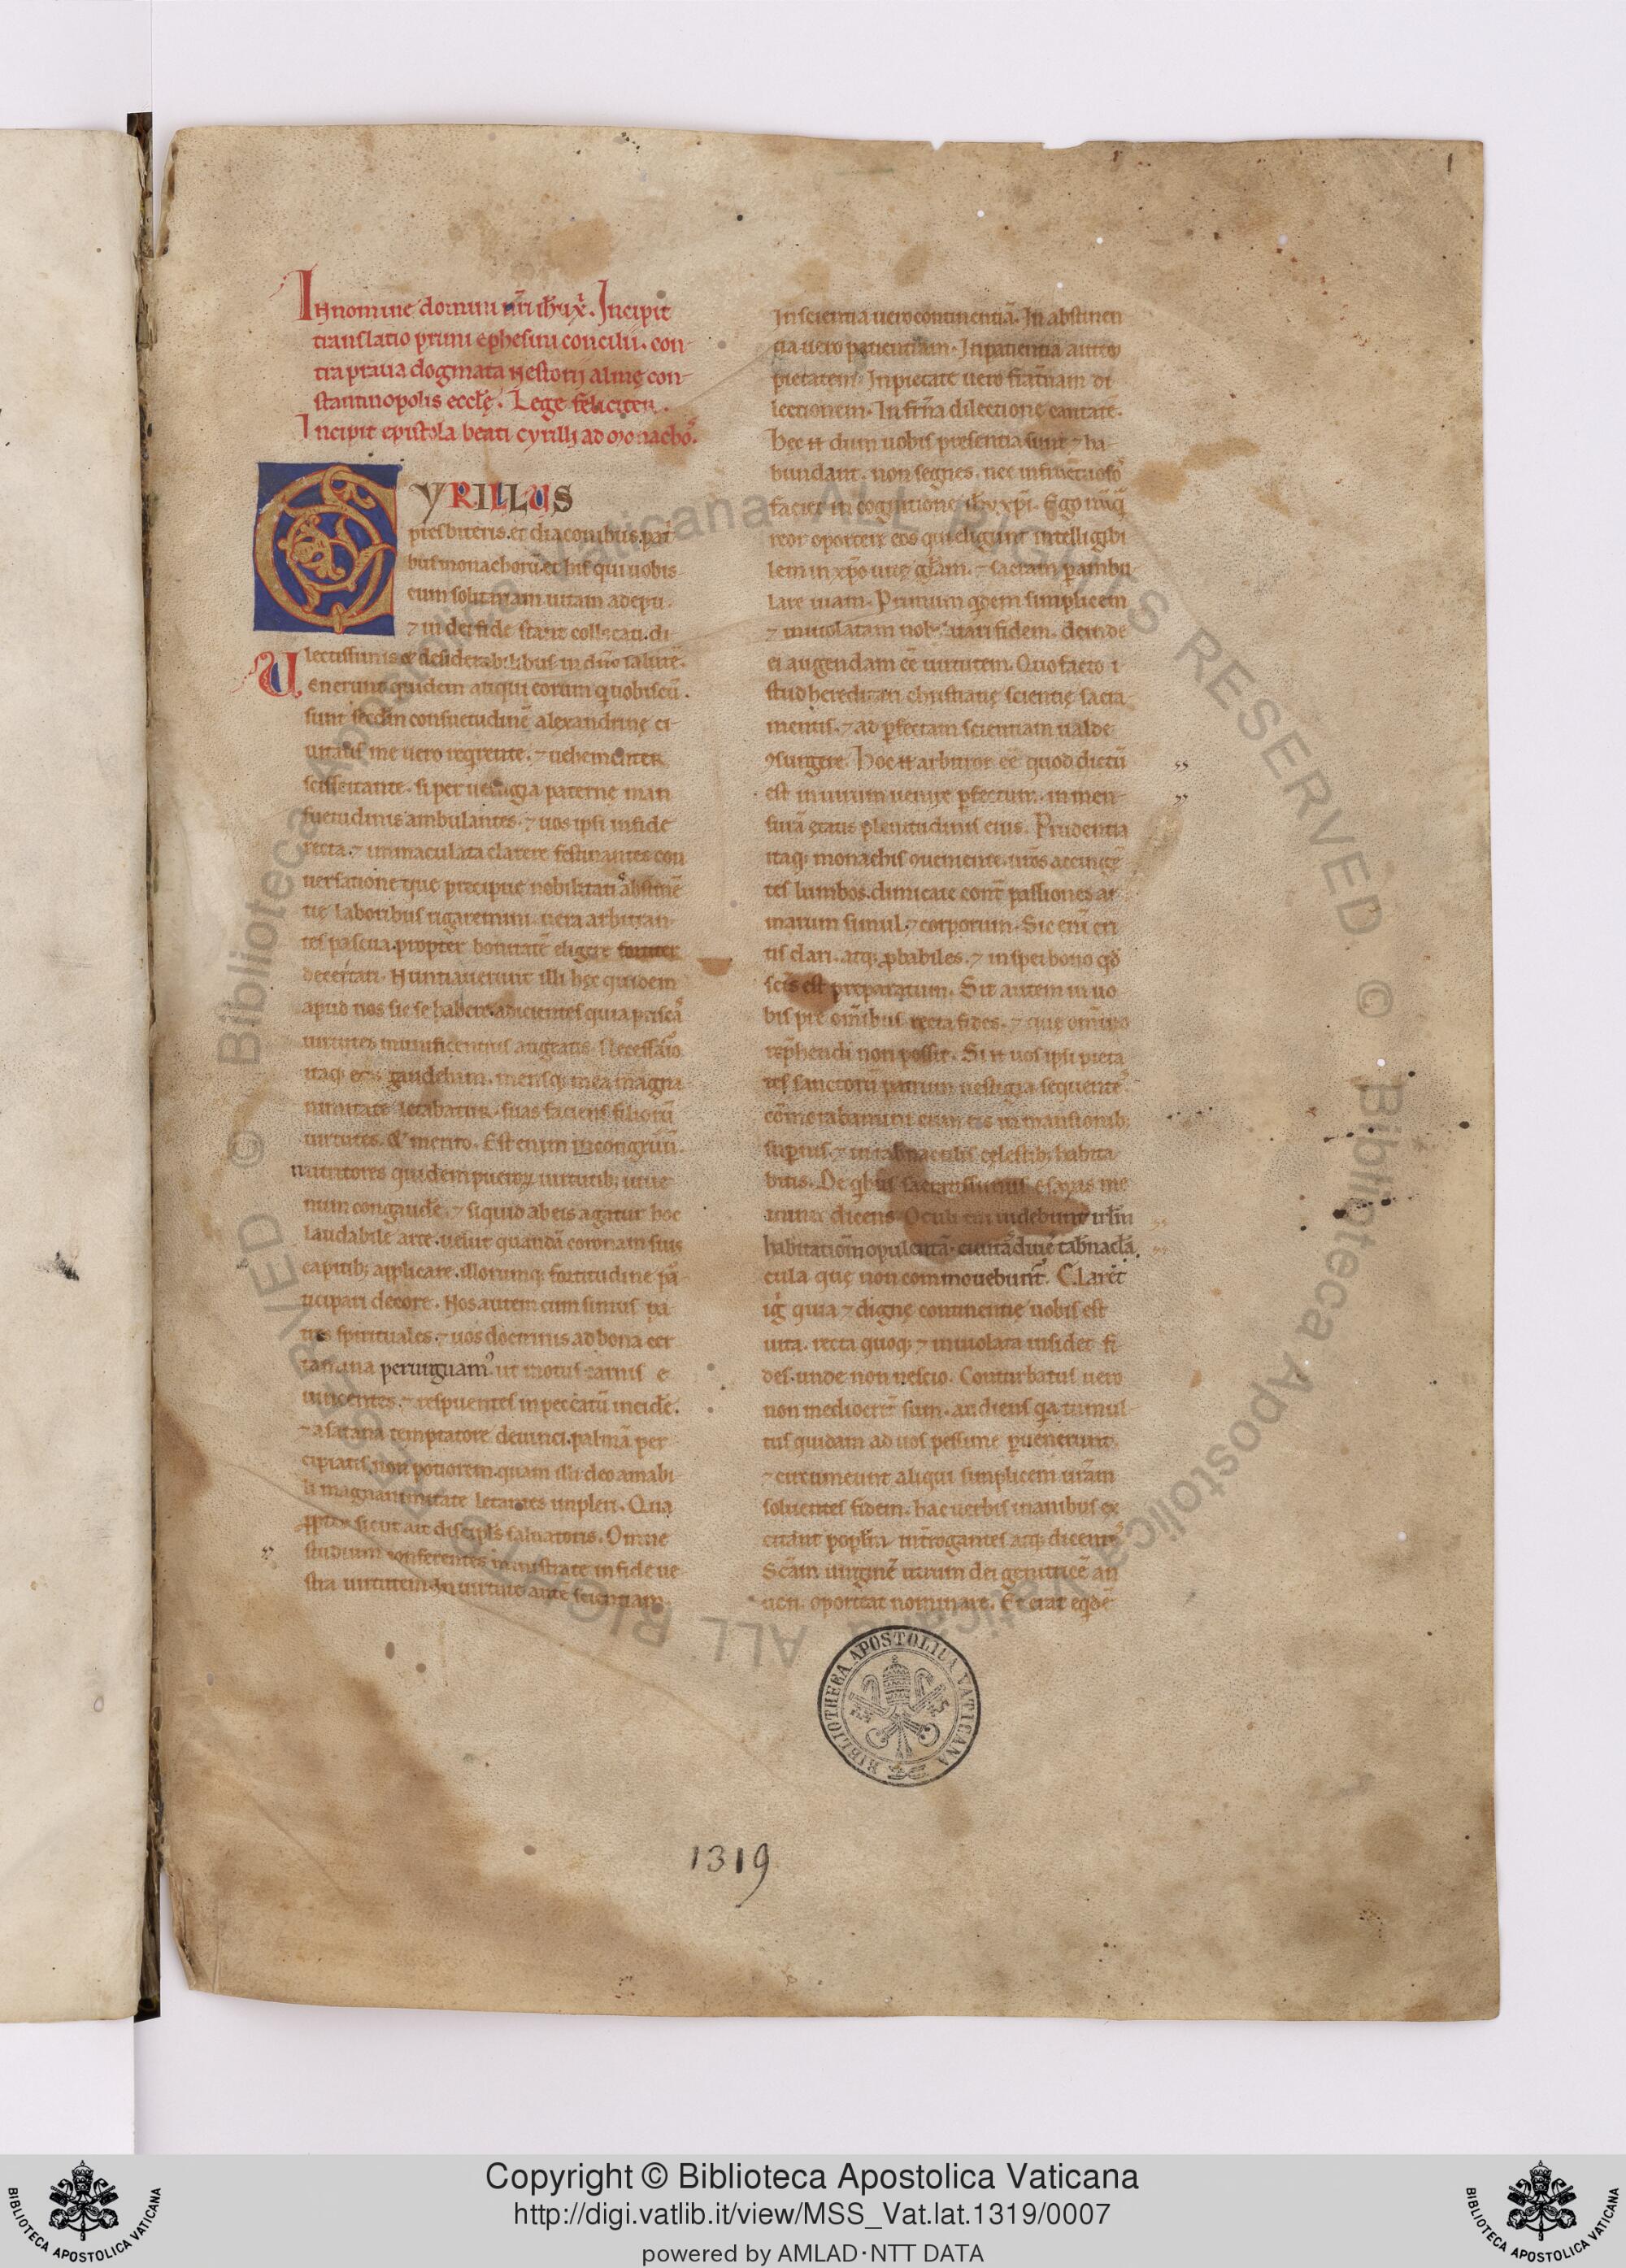 1
In nomine domini nr̄i ih̄u xp̄i. Incipit
translatio primi ephesini concilii. con-
tra praua dogmata Nestorij almę con-
stantinopolis ecclę̄. Lege feliciter.
Incipit epistola beati cyrilli ad monachos.
CYRILLUS
presbiteris. et diaconibus. patri
bus monachorū. et his qui uobis
cum solitariam uitam adepti.
⁊ in dei fide stant collocati. di
lectissimis & desiderabilibus in dn̄o salutē.
Uenerunt quidem aliqui eorum q̇ uobiscū.
sunt secd̄m consuetudinē alexandrinę ci-
uitatis me uero reqirente. ⁊ uehementer
scissitante. si per uestigia paternę man
suetudinis ambulantes. ⁊ uos ipsi in fide
recta. ⁊ immaculata clarere festinantes con
uersatione quę precipue nobilitati abstinē
tię laboribus rigaremini. uera arbitran-
tes pascua. propter bonitatē eligere fortiter
decertari. Nuntiauerunt illi hęc quidem
apud nos sic se habere. adicientes quia priscas
uirtutes munificentius augeatis. Necessario
itaq; ego gaudebam. mensq; mea magna
nimitate letabatur. suas faciens filiorū
uirtutes. & merito. Est enim incongruū.
nutritores quidem puerorꝝ uirtutib; iuue
num congaudē̄. ⁊ siquid ab eis agitur hoc
laudabile arte. uelut quandā coronam suis
capitib; applicare. illorumq; fortitudine pa
ticipari decore. Nos autem cum simus pa
tres spirituales. ⁊ uos docemus ad bona cer
tamina peruiguam᾽ ut motus carnis e
uincentes. ⁊ respuentes in peccatū incidē̄.
⁊ a satana temptatore deuinci. palmā per
cipiatis non potiorem quam illi deo amabi
li magnanimitate letantes impleri. Qua
propter sicut ait discipl̄s saluatoris. Omne
studium conferentes ministrate in fide ue
stra uirtutem. In uirtute autē scientiam.
In scientia uero continentiā. In abstinen
tia uero patientiam. In patientia autē
pietatem. In pietate uero frat̄nam di
lectionem. In frn̄a dilectione caritatē.
Hęc .n. dum uobis presentia sunt ⁊ ha
bundant. non segnes. nec infructuosos
faciet in cognitione ih̄u xp̄i. Ego nūq̄
reor oportere eos qui eligunt intelligibi
lem in xp̄o uitę glam̄. ⁊ sacram p̄ambu
lare uiam. Primum qdem simplicem
⁊ inuiolatam nob seruari fidem. deinde
ei augendam eē uirtutem. Quo facto i
stud hereditari christianę scientię sacra
mentis. ⁊ ad p̄fectam scientiam ualde
ꝯsurgere. Hoc .n. arbitror eē quod dictū
est in uirum uenire p̄fectum. in men-
surā ętatis plenitudinis eius. Prudentia
itaq; monachis ꝯuenienter uros accingē
tes lumbos. dimicate cont̄ passiones ani
marum simul. ⁊ corporum. Sic enī eri
tis clari. atq; p̄babiles. ⁊ in spei bono qd̄
scīs est preparatum. Sit autem in uo
bis pre omībus recta fides. ⁊ que omīno
rep̄hendi non possit. Si .n. uos ipsi pieta
tis sanctorū patrum uestigia sequentes
cōmorabamini cum eis in mansionib;
sup̄nis. ⁊ in tab̄naculis cęlestib; habita
bitis. De qb; sacratissimus esayas me
minit dicens. Oculi tui uidebunt irlm̄
habitatiōm opulentā. ciuitā diuē tab̄nacla.
cula quę non commouebunt᾽. Claret
ig̅ quia ⁊ dignę continentię uobis est
uita. recta quoq; ⁊ inuiolata insidet fi
des. unde non nescio. Conturbatus uero
non mediocrit̄ sum. audiens qa tumul
tus quidam ad uos pessime p̄uenerunt.
⁊ circumeunt aliqui simplicem uram̄
soluentes fidem. hac uerbis inanibus ex
citant popl̄m int̄rogantes atq; dicentes
Scām uirginē utrum dei genitricē an
non. oporteat nominare. Et erat eqdē
BIBLIOTHECA APOSTOLICA VATICANA
1319
© Biblioteca Apostolica Vaticana ALL RIGHTS RESERVED © Biblioteca Apostolica Vaticana ALL RIGHTS RESERVED
Copyright © Biblioteca Apostolica Vaticana
http://digi.vatlib.it/view/MSS_Vat.lat.1319/0007
powered by AMLAD·NTT DATA
BIBLIOTECA APOSTOLICA VATICANA
BIBLIOTECA APOSTOLICA VATICANA